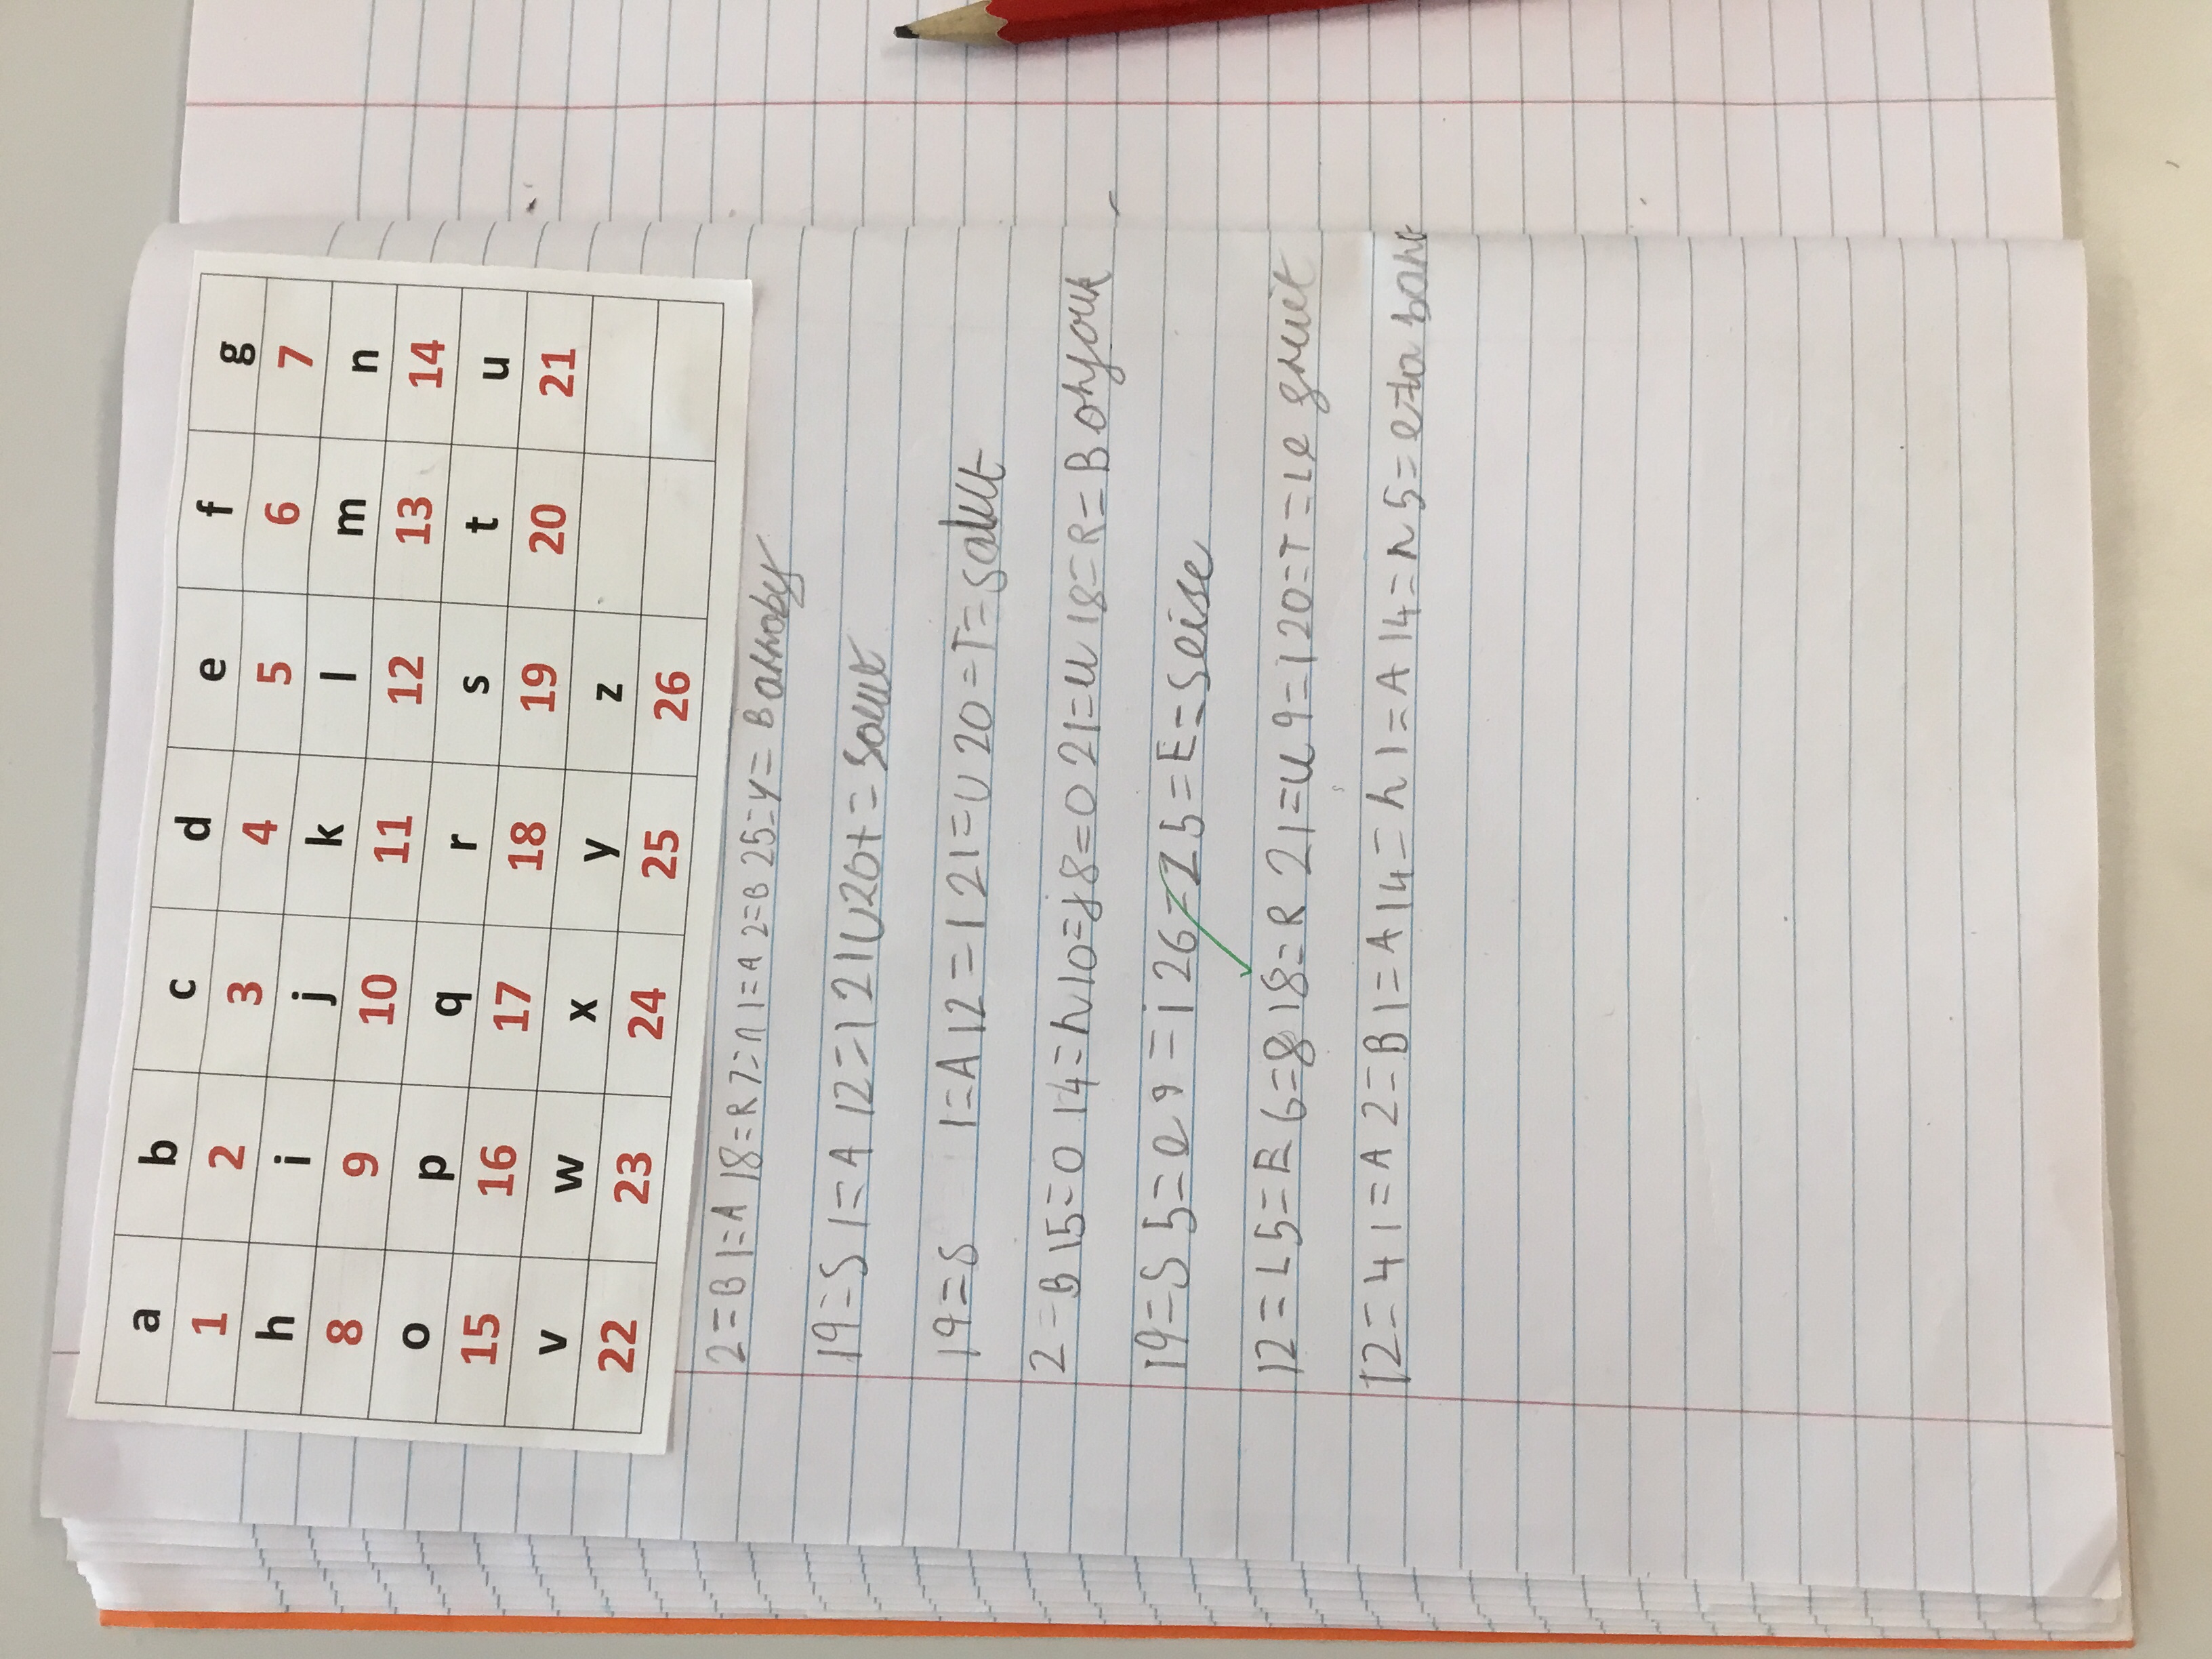 a b c d e f g
1 2 3 4 5 6 7
h i j k l m n
8 9 10 11 12 13 14
o p q r s t u
15 16 17 18 19 20 21
v w x y z
22 23 24 25 26
2=B 1=A 18=R 7=n 1=A 2=B 25=y=Barnaby
19=S 1=A 12=l 21U20t=saut
19=S 1=A 12=l 21=U 20=T=salut
2=B 15=O 14=n 10=j 8=O 21=u 18=R=Bonjour
19=S 5=e 9=i 26=Z 5=E=Seise
12=L 5=E 6=f 18=R 21=u 9=i 20=T=Le fruit
12=4 1=A 2=B 1=A 14=n 1=A 14=n 5=e